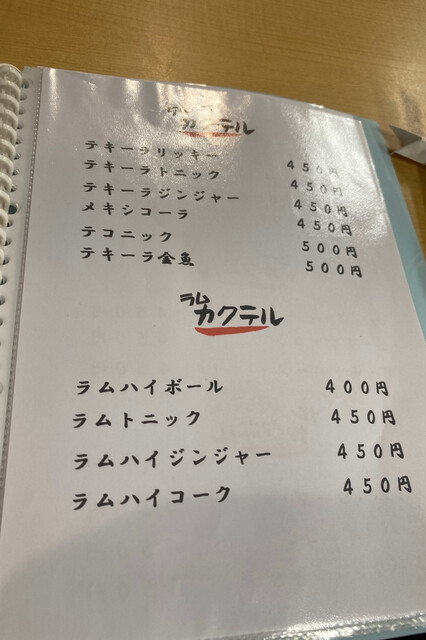 カクテル
テキーラリッキー 450円
テキーラトニック 450円
テキーラジンジャー 450円
メキシコーラ 450円
テコニック 500円
テキーラ金魚 500円
ラム
カクテル
ラムハイボール 400円
ラムトニック 450円
ラムハイジンジャー 450円
ラムハイコーク 450円